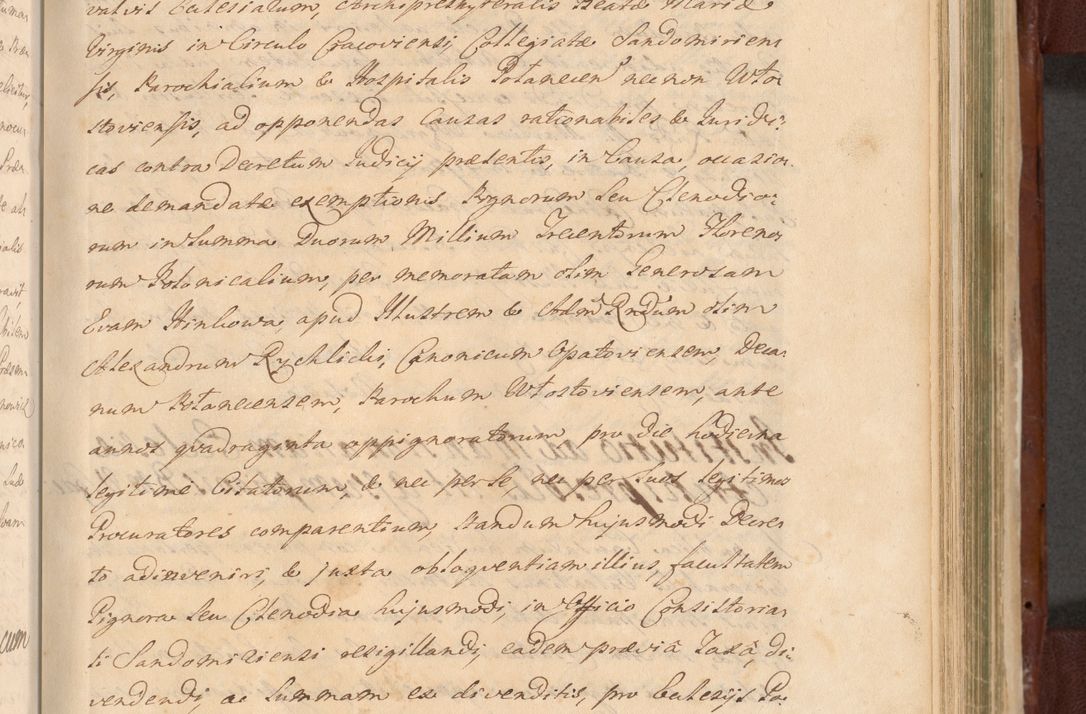 valvis Ecclesiarum, Archipresbyteralis Beatæ Mariæ
Virginis in Circulo Cracoviensi, Collegiatæ Sandomirien
sis, Parochialium & Hospitalis Połanecen necnon Włos
toviensis, ad opponendas Causas rationabiles & Juridi:
cas contra Decretum Judicij præsentis, in Causa, occasio
ne demandatæ exemptionis Pignorum seu Clenodio:
rum in Summa Duorum Millium Trecentorum Floreno
rum Polonicalium, per memoratam olim Generosam
Evam Hinkowa, apud Illustrem & Adm Rndum olim
Alexandrum Rychlicki, Canonicum Opatoviensem, Deca
num Połanecensem, Parochum Włostoviensem, ante
annos quadraginta oppignoratorum pro die hodierna
legitime Citatorum & nec per se, nec per suos legitimos
Procuratores comparentium, standum hujusmodi Decre
to adinveniri, & juxta obloquentiam illius, facultatem
Pignora seu Clenodia hujusmodi, in Officio Consistoria
li Sandomiriensi resigillandi, eadem prævia Taxa, di
vendendi, ac Summam ex divenditis, pro Ecclesijs Po:
cum